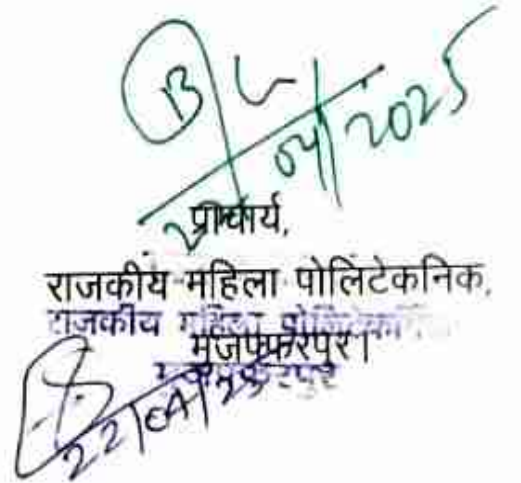 22/04/2025
प्राचार्य,
राजकीय महिला पोलिटेकनिक,
राजकीय महिला पोलिटेकनिक
मुजफ्फरपुर।
मुजफ्फरपुर
22/04/25